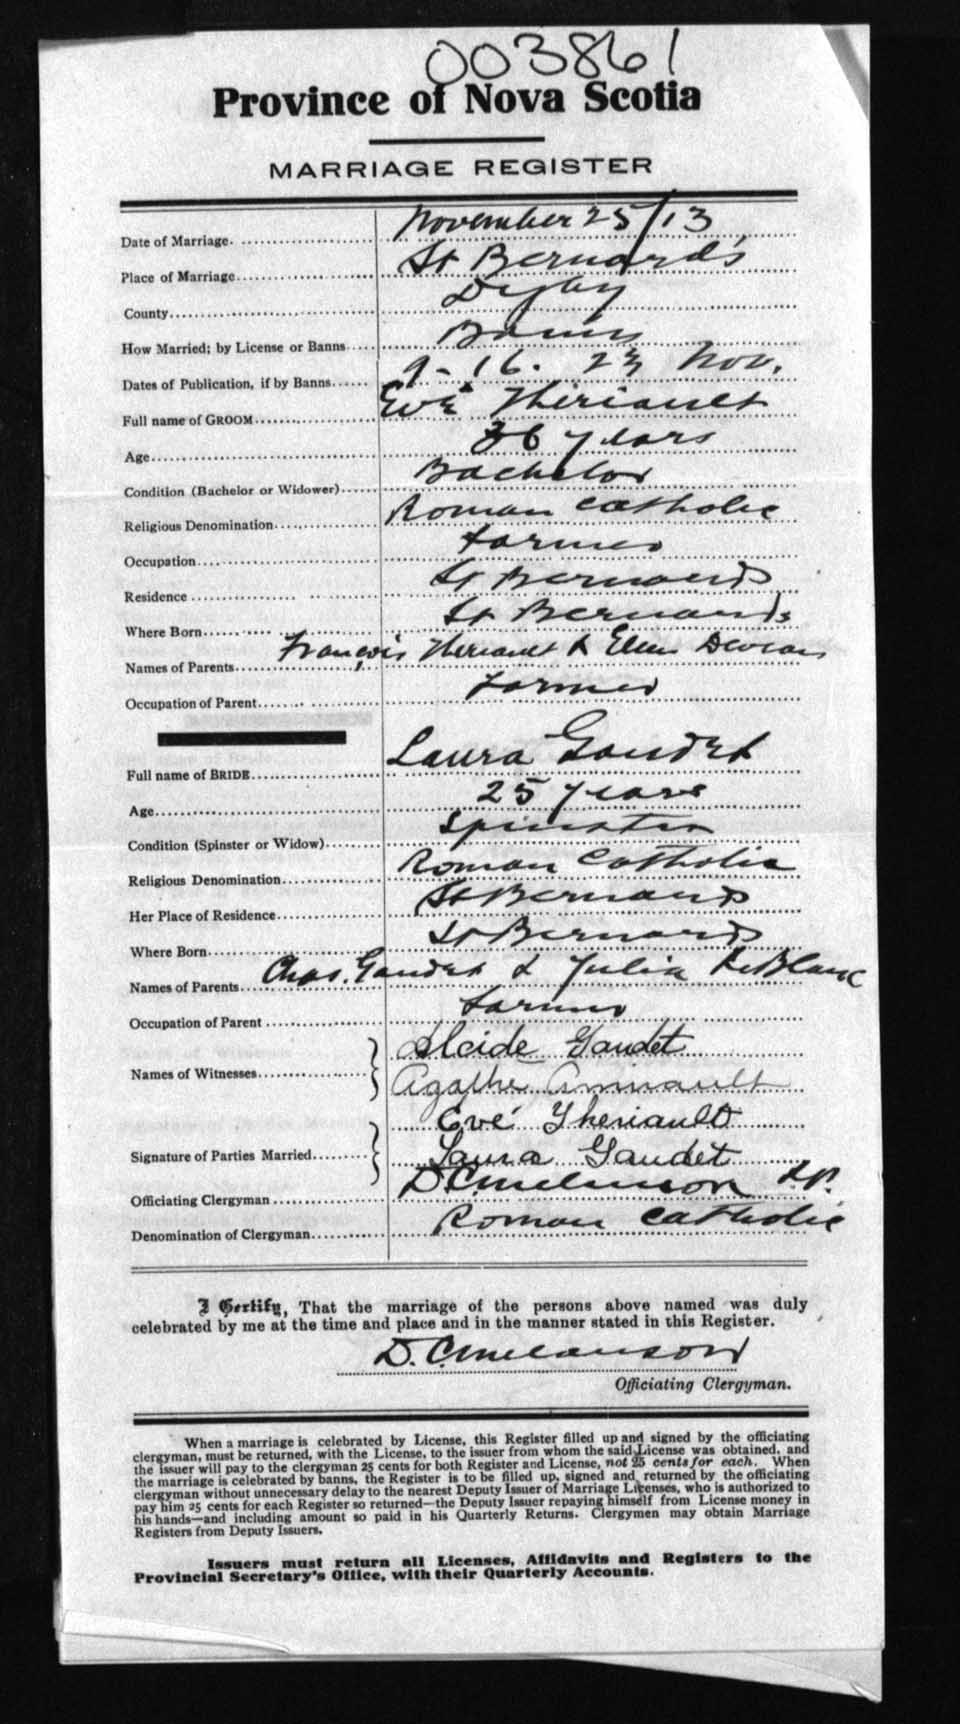 003861
Province of Nova Scotia
MARRIAGE REGISTER
Date of Marriage. November 25/13
Place of Marriage. St Bernard's
County. Digby
How Married; by License or Banns. Banns
Dates of Publication, if by Banns. 9 - 16. 23 Nov.
Full name of GROOM. Evé Theriault
Age. 36 years
Condition (Bachelor or Widower). Bachelor
Religious Denomination. Roman Catholic
Occupation. farmer
Residence St Bernards
Where Born. St Bernards
Names of Parents. François Theriault & Ellen
Occupation of Parent. farmer
Full name of BRIDE. Laura Gaudet
Age. 25 years
Condition (Spinster or Widow). Spinster
Religious Denomination. Roman Catholic
Her Place of Residence. St Bernards
Where Born. St Bernards
Names of Parents. Chas. Gaudet & Julia LeBlanc
Occupation of Parent farmer
Names of Witnesses. Alcide Gaudet
Agathe
Evé Theriault
Signature of Parties Married. Laura Gaudet
Officiating Clergyman D. C. Melanson P.P.
Denomination of Clergyman. Roman Catholic
I Certify, That the marriage of the persons above named was duly
celebrated by me at the time and place and in the manner stated in this Register.
D. C. Melanson
Officiating Clergyman.
When a marriage is celebrated by License, this Register filled up and signed by the officiating
clergyman, must be returned, with the License, to the issuer from whom the said License was obtained, and
the issuer will pay to the clergyman 25 cents for both Register and License, not 25 cents for each. When
the marriage is celebrated by banns, the Register is to be filled up, signed and returned by the officiating
clergyman without unnecessary delay to the nearest Deputy Issuer of Marriage Licenses, who is authorized to
pay him 25 cents for each Register so returned—the Deputy Issuer repaying himself from License money in
his hands—and including amount so paid in his Quarterly Returns. Clergymen may obtain Marriage
Registers from Deputy Issuers.
Issuers must return all Licenses, Affidavits and Registers to the
Provincial Secretary's Office, with their Quarterly Accounts.